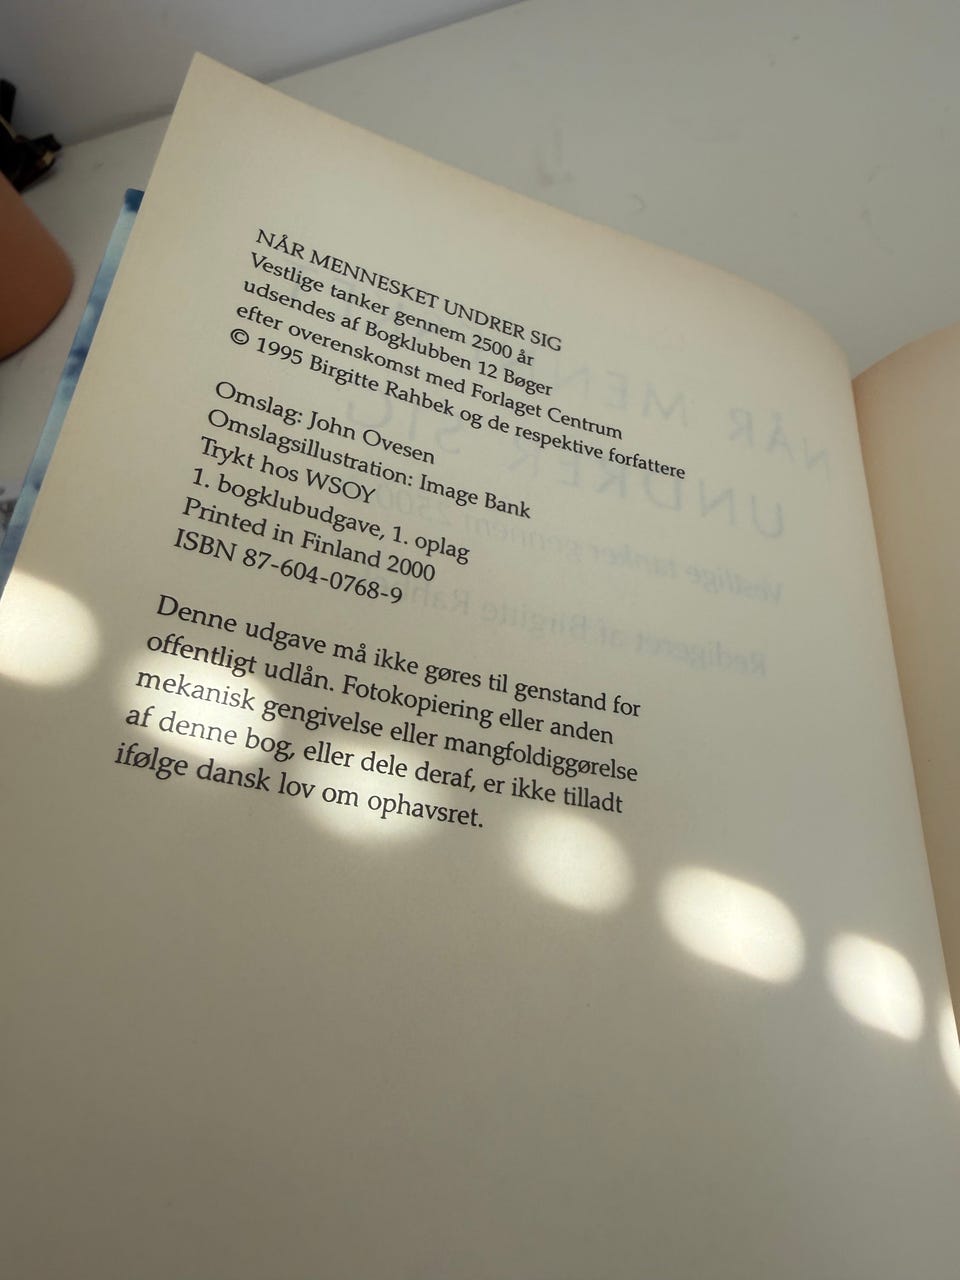 NÅR MENNESKET UNDRER SIG
Vestlige tanker gennem 2500 år
udsendes af Bogklubben 12 Bøger
efter overenskomst med Forlaget Centrum
© 1995 Birgitte Rahbek og de respektive forfattere
Omslag: John Ovesen
Omslagsillustration: Image Bank
Trykt hos WSOY
1. bogklubudgave, 1. oplag
Printed in Finland 2000
ISBN 87-604-0768-9
Denne udgave må ikke gøres til genstand for
offentligt udlån. Fotokopiering eller anden
mekanisk gengivelse eller mangfoldiggørelse
af denne bog, eller dele deraf, er ikke tilladt
ifølge dansk lov om ophavsret.